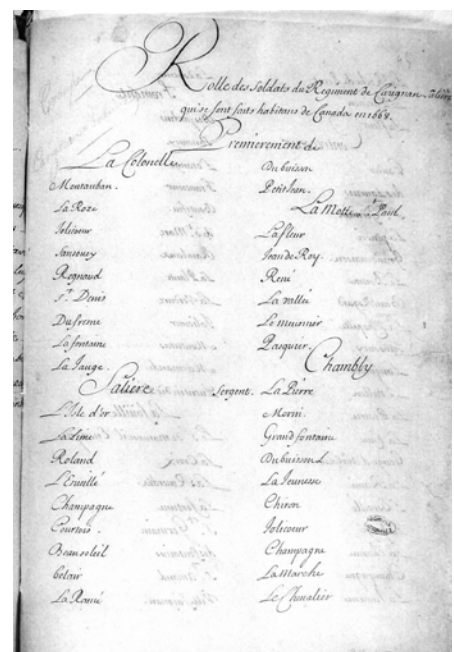 Rolle des Soldats du Regiment de Carignan Saliere
qui se sont faits habitans de Canada en 1668.
Premierement de
La Colonelle
Montauban.
La Roze
Jolicoeur
Sansoucy
Regnaud
St. Denis
Dufresne
La fontaine
La Jauge.
Saliere
L'Isle d'or
La Lime
Roland
L'Eveillé
Champagne
Courtois.
Beausoleil
belair
La Ramé
Dubuisson
Petit Jean.
La Motte St. Paul.
Lafleur
Jean de Roy.
René
La vallée
Le meusnier
Pasquier.
Chambly
Sergent. La Pierre
Morin
Grandfontaine
Dubuisson
La Jeunesse
Chiron
Jolicoeur
Champagne
La Marche
Le Chevalier